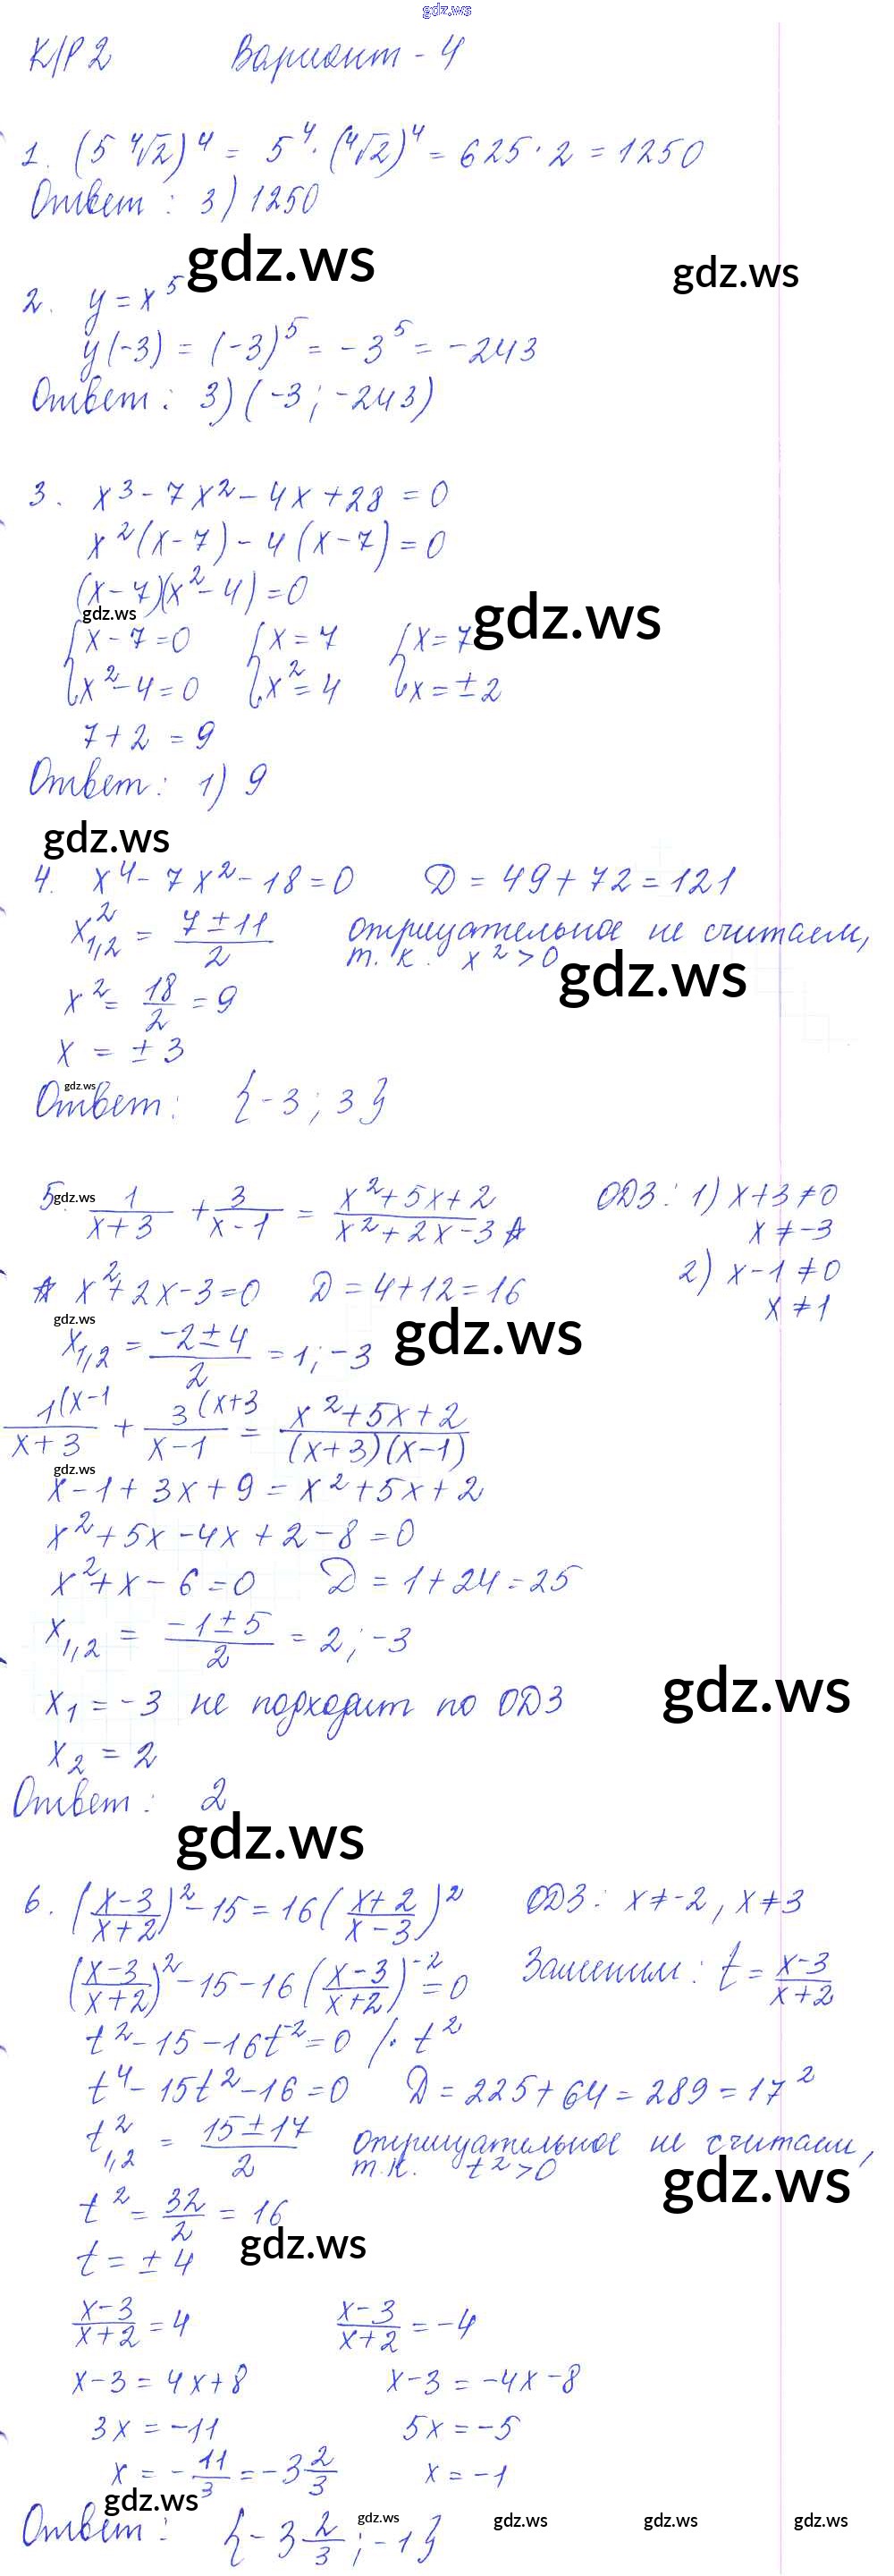 gdz.ws
К/Р 2 Вариант - 4
1. (5 ⁴√2)⁴ = 5⁴ · (⁴√2)⁴ = 625 · 2 = 1250
Ответ: 3) 1250
gdz.ws gdz.ws
2. y = x⁵
y(-3) = (-3)⁵ = -3⁵ = -243
Ответ: 3) (-3; -243)
3. x³ - 7x² - 4x + 28 = 0
x²(x-7) - 4(x-7) = 0
(x-7)(x²-4) = 0
gdz.ws gdz.ws
{x-7=0 {x=7 {x=7
{x²-4=0 {x²=4 {x=±2
7+2 = 9
Ответ: 1) 9
gdz.ws
4. x⁴ - 7x² - 18 = 0 D = 49 + 72 = 121
x²₁,₂ = (7±11)/2 отрицательное не считаем,
т.к. x² > 0 gdz.ws
x² = 18/2 = 9
x = ±3
gdz.ws
Ответ: {-3; 3}
5. gdz.ws 1/(x+3) + 3/(x-1) = (x²+5x+2)/(x²+2x-3) ☆ ОДЗ: 1) x+3≠0
x ≠ -3
☆ x²+2x-3=0 D = 4+12 = 16 2) x-1≠0
x ≠ 1
gdz.ws gdz.ws
x₁,₂ = (-2±4)/2 = 1; -3
1(x-1/(x+3) + 3(x+3/(x-1) = (x²+5x+2)/((x+3)(x-1))
gdz.ws
x-1+3x+9 = x²+5x+2
x²+5x-4x+2-8=0
x²+x-6=0 D = 1+24=25
x₁,₂ = (-1±5)/2 = 2; -3
x₁ = -3 не подходит по ОДЗ gdz.ws
x₂ = 2
Ответ: 2
gdz.ws
6. ((x-3)/(x+2))² - 15 = 16((x+2)/(x-3))² ОДЗ: x≠-2, x≠3
((x-3)/(x+2))² - 15 - 16((x-3)/(x+2))⁻² = 0 Заменим: t = (x-3)/(x+2)
t² - 15 - 16t⁻² = 0 /· t²
t⁴ - 15t² - 16 = 0 D = 225+64 = 289 = 17²
t²₁,₂ = (15±17)/2 отрицательное не считаем,
т.к. t² > 0 gdz.ws
t² = 32/2 = 16
gdz.ws
t = ±4
(x-3)/(x+2) = 4 (x-3)/(x+2) = -4
x-3 = 4x+8 x-3 = -4x-8
3x = -11 5x = -5
x = -11/3 = -3 2/3 x = -1
gdz.ws
Ответ: {-3 2/3; -1}
gdz.ws gdz.ws gdz.ws gdz.ws